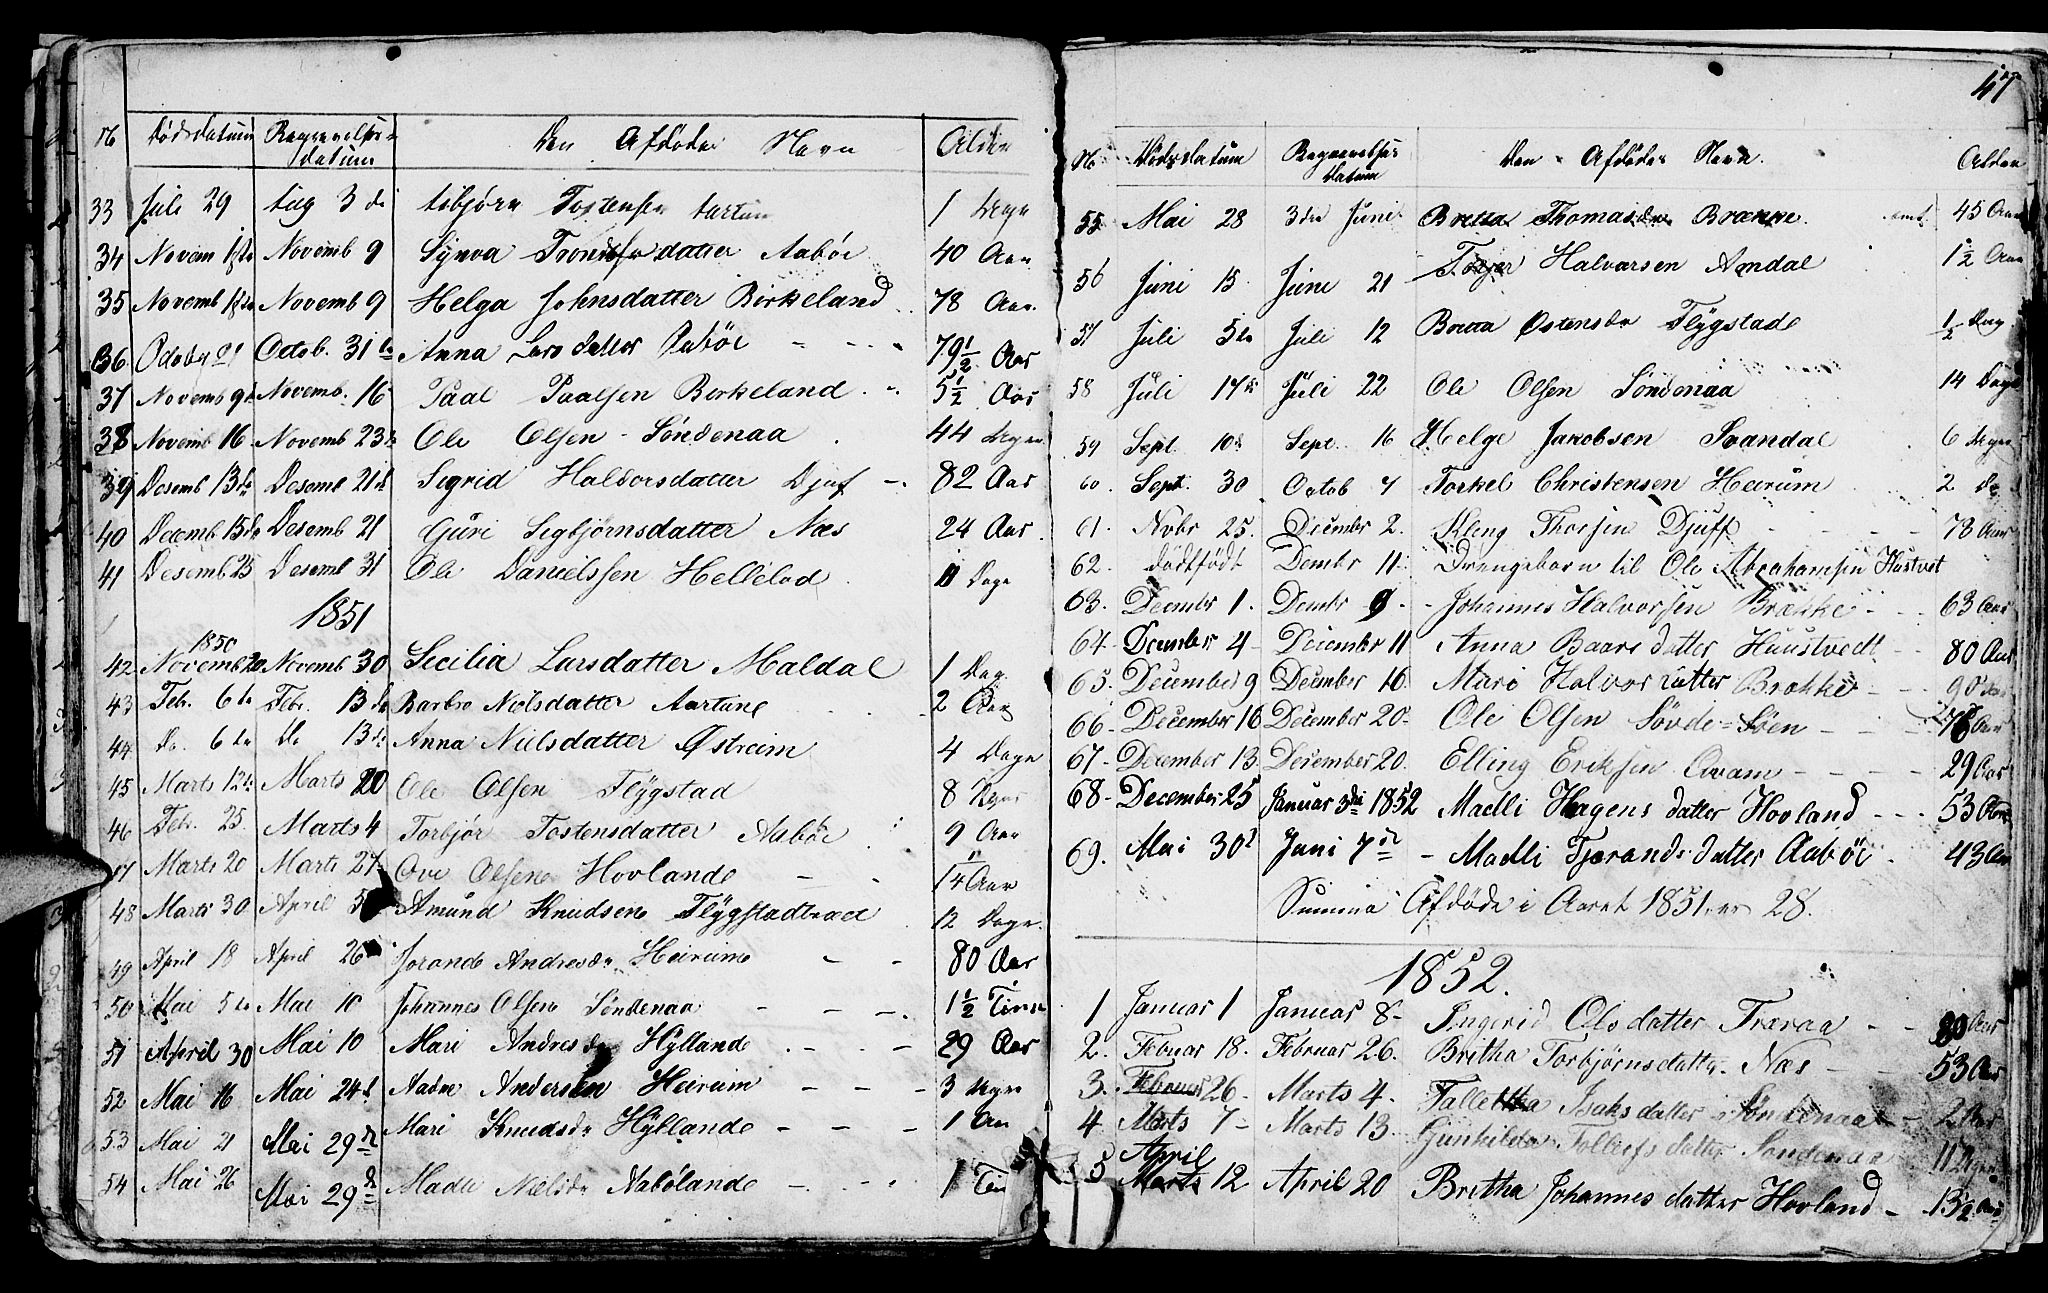 N Dødsdatum Begravelses- datum Den Afdødes Navn Alder
33 Juli 29 Aug 3de Asbjørn Tostensen Aartun 1 Degn
34 Novem 1ste Novemb 9 Synva Trondsdatter Aabøe 40 Aar
35 Novemb 1ste Novemb 9 Helga Johnsdatter Birkeland 78 Aar
36 Octob. 31te Anna Larsdatter Aabøe 79 1/2 Aar
37 Novemb 9de Novemb. 16 Paal Paalsen Berkeland 5 1/2 Aar
38 Novemb 16 Novemb 23de Ole Olsen Søndenaa 44 Degn
39 Desemb 13de Desemb 21de Sigrid Haldorsdatter Djuf 82 Aar
40 Decemb 15de Desemb 21 Guri Segbjørnsdatter Næs 24 Aar
41 Desemb 25 Desemb 31 Ole Danielssen Hellelad 11 Dage
1851
1850
42 Novemb 20 Novemb 30 Secilia Larsdatter Maldal 1 Dag
43 Febr. 6te Febr. 13de Barbro Nielsdatter Aartune 2 Aar
44 Do 6te Do 13de Anna Nielsdatter Østreim 4 Degn
45 Marts 12te Marts 20 Ole Olsen Fløgstad 8 Degn
46 Febr. 25 Marts 4 Torbjør Tostensdatter Aabøe 9 Aar
47 Marts 20 Marts 27 Ove Olsen Hovlande 14 Aar
48 Marts 30 April 5 Amund Knudsen Fløgstadbræd 12 Degn
49 April 18 April 26 Jorande Andresdr Heireim 80 Aar
50 Mai 5te Mai 10 Johannes Olsen Søndenaa 1 1/2 Time
51 April 30 Mai 10 Mari Andresdr Hyllande 29 Aar
52 Mai 16 Mai 24de Aadne Andersen Heireim 3 Degn
53 Mai 21 Mai 29de Mari Knudsdr Hyllande 1 Aar
54 Mai 26 Mai 29de Madle Nielsdr Aabølande 1 Tim
47
N Dødsdatum Begravelses datum Den Afdødes Navn Alder
55 Mai 28 3die Juni Bretta Thomasdr Brække 45 Aar
56 Juni 15 Juni 21 Torjer Halvarsen Amdal 1 1/2 Aar
57 Juli 5te Juli 12 Bretta Østensdr Fløgstade 1/2 Dag
58 Juli 14de Juli 22 Ole Olsen Søndenaa 14 Dage
59 Sept. 10de Sept. 16 Helge Jakobsen Svandal 6 Degn
60. Sept. 30 Octob 7 Torkel Christensen Heirum 2
61. Nvbr 25. December 2. Kleng Thorsen Djuff 78 Aar
62. dødfødt Decmbr 11. Drengebarn til Ole Abrahamsen Hustvet
63. December 1. Decmbr 9. Johannes Halvorsen Brække 63 Aar
64. December 4 December 11 Anna Baars datter Huustvedt 80 Aar
65. December 9 December 16. Mari Halvor datter Brække 90 Aar
66. December 16 December 20. Ole Olsen Søvde-Søen 76 Aar
67. December 13. December 20. Elling Eriksen Qvam 29 Aar
68. December 25 Januar 3die 1852 Madli Hagens datter Hovland 53 Aar
69. Mai 30t Juni 7de Madli Tjerands datter Aabøe 43 Aar
Summa Afdøde i Aaret 1851 er 28.
1852.
1 Januar 1 Januar 8 Ingerid Olsdatter Træraa 80 Aar
2. Februar 18. Februar 26. Britha Torbjørnsdatter Næs 53 Aar
3. Februar 26 Marts 4. Isaksdatter Søndenaa 2 Aar
4 Marts 7 Marts 13. Gunhilda Tollefs datter Søndenaa 11 Degn
April
5 Marts 12 April 20 Britha Johannes datter Hovland 13 1/2 Aar